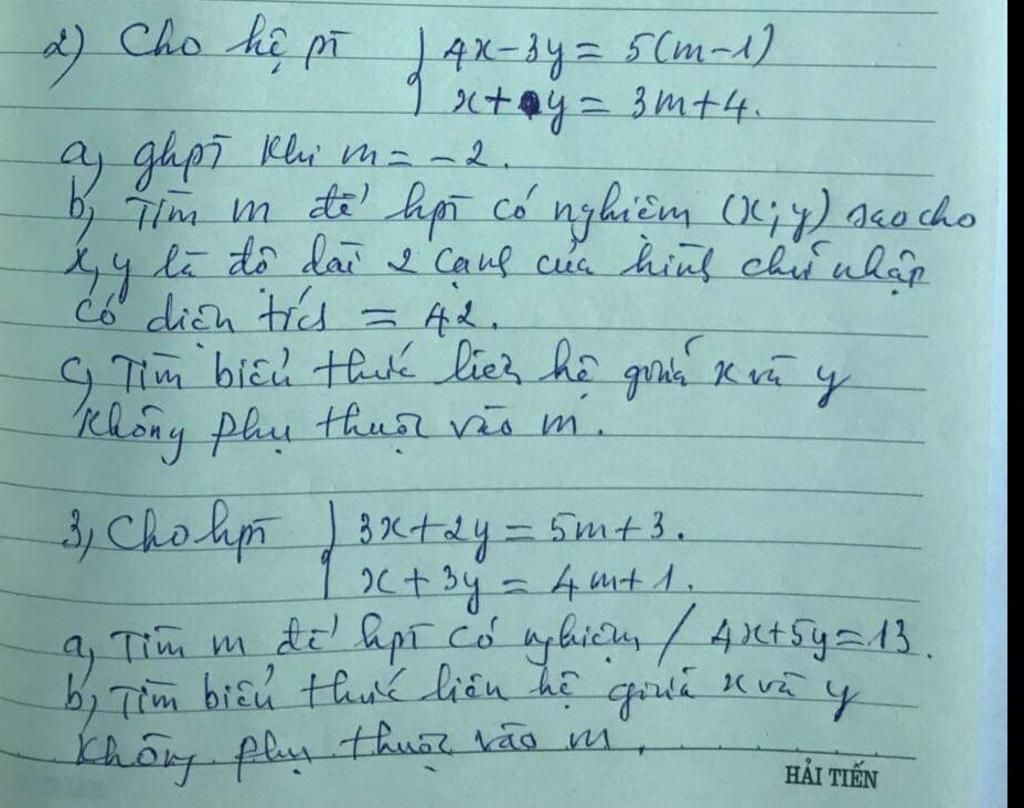 2) Cho hệ pt { 4x-3y = 5(m-1)
x+y = 3m+4.
a, ghpt khi m = -2.
b, Tìm m để hpt có nghiệm (x;y) sao cho
x,y là độ dài 2 cạnh của hình chữ nhật
có diện tích = 42.
c, Tìm biểu thức liên hệ giữa x và y
không phụ thuộc vào m.
3, Cho hpt { 3x+2y = 5m+3.
x+3y = 4m+1.
a, Tìm m để hpt có nghiệm / 4x+5y=13.
b, Tìm biểu thức liên hệ giữa x và y
không phụ thuộc vào m.
HẢI TIẾN